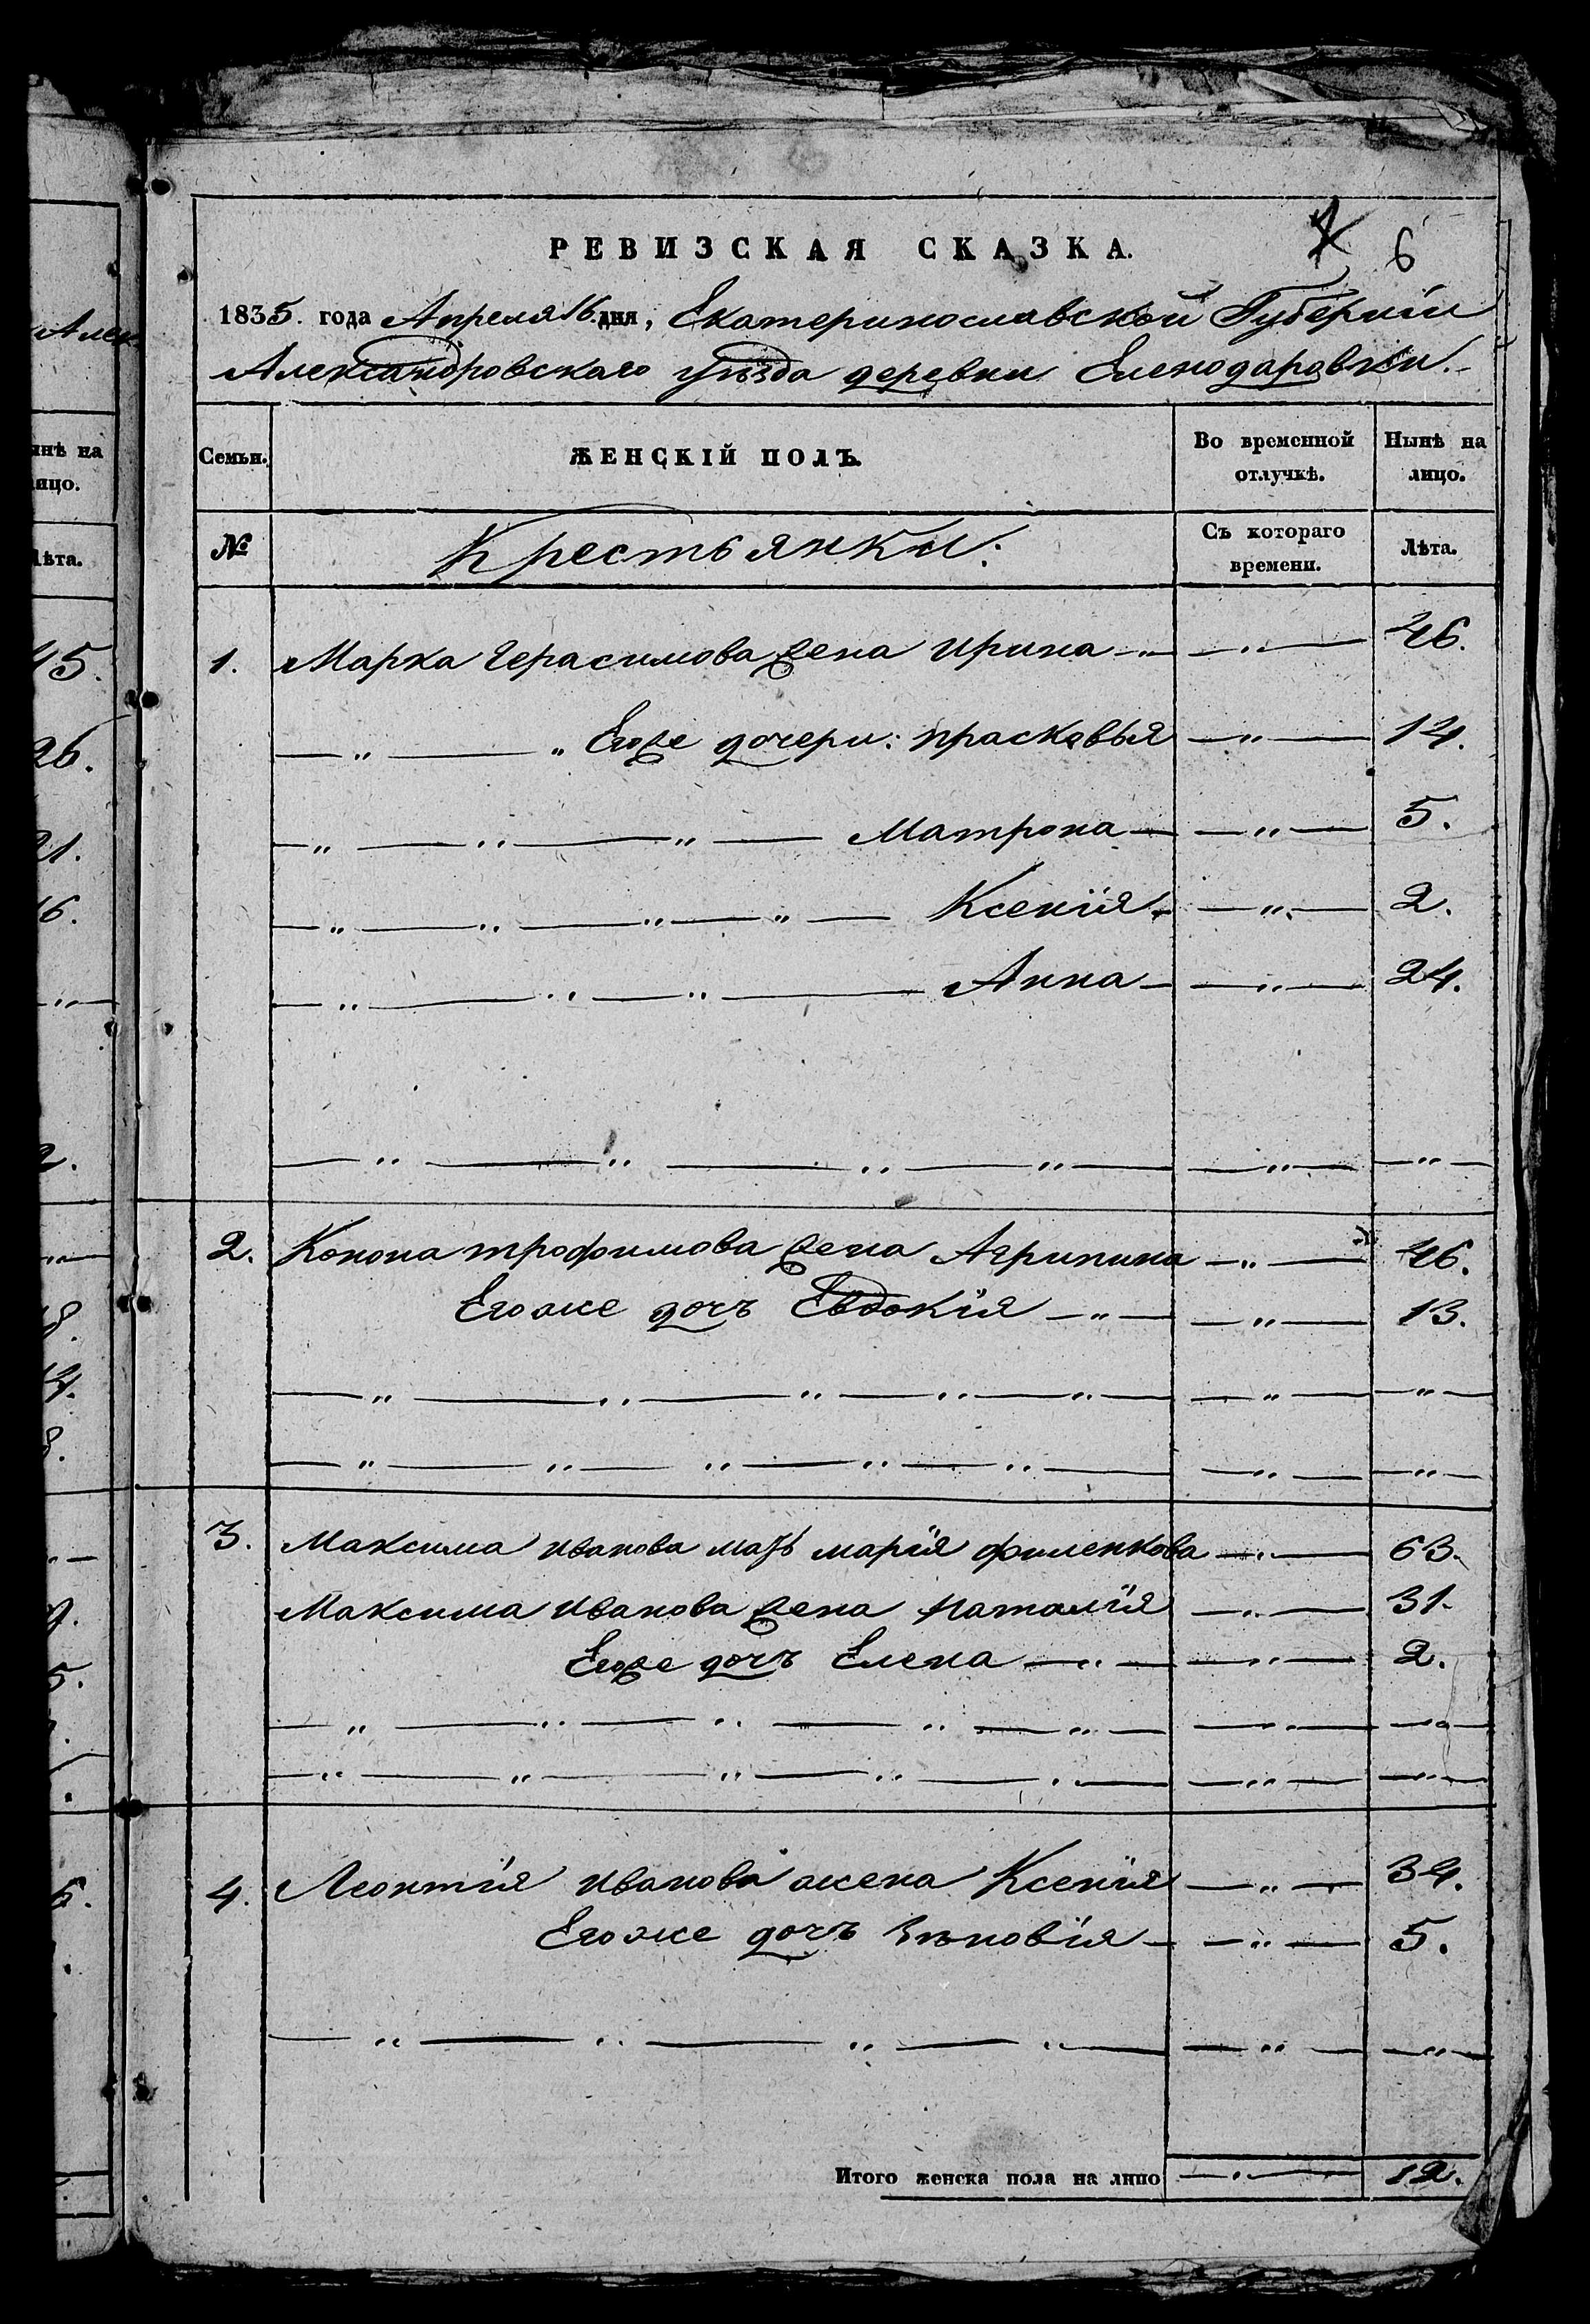 Алек
нѣ на
ицо.
Лѣта.
45.
26.
21.
16.
2.
8.
6.
РЕВИЗСКАЯ СКАЗКА.
6
1835. года Апреля 16 дня, Екатеринославской Губерніи
Александровскаго уѣзда деревни Еленодаровки.
Семьи. ЖЕНСКІЙ ПОЛЪ. Во временной отлучкѣ. Нынѣ на лицо.
№ Крестьянки. Съ котораго времени. Лѣта.
1. Марка Герасимова жена Ирина — " — 46.
— " — " Егоже дочери: прасковья — " — 14.
— " — " — " — Матрона — — " — 5.
— " — " — " — " — Ксенія — " — 2.
— " — " — " — Анна — — " — 24.
— " — " — " — " — — " — — " —
2. Конона трофимова жена Агрипина — " — 46.
Егоже дочь Евдокія — " — — " — 13.
— " — " — " — " — " — — " — — " —
— " — " — " — " — " — — " — — " —
3. Максима иванова мать марія филенкова — " — 63.
Максима иванова жена Наталія — " — 31.
Егоже дочь Елена — " — — " — 2.
— " — " — " — " — " — — " — — " —
— " — " — " — " — " — — " — — " —
4. Леонтія иванова жена Ксенія — " — 34.
Егоже дочь Зѣновія — — " — 5.
— " — " — " — " — — " — — " —
Итого женска пола на лицо — " — 12.